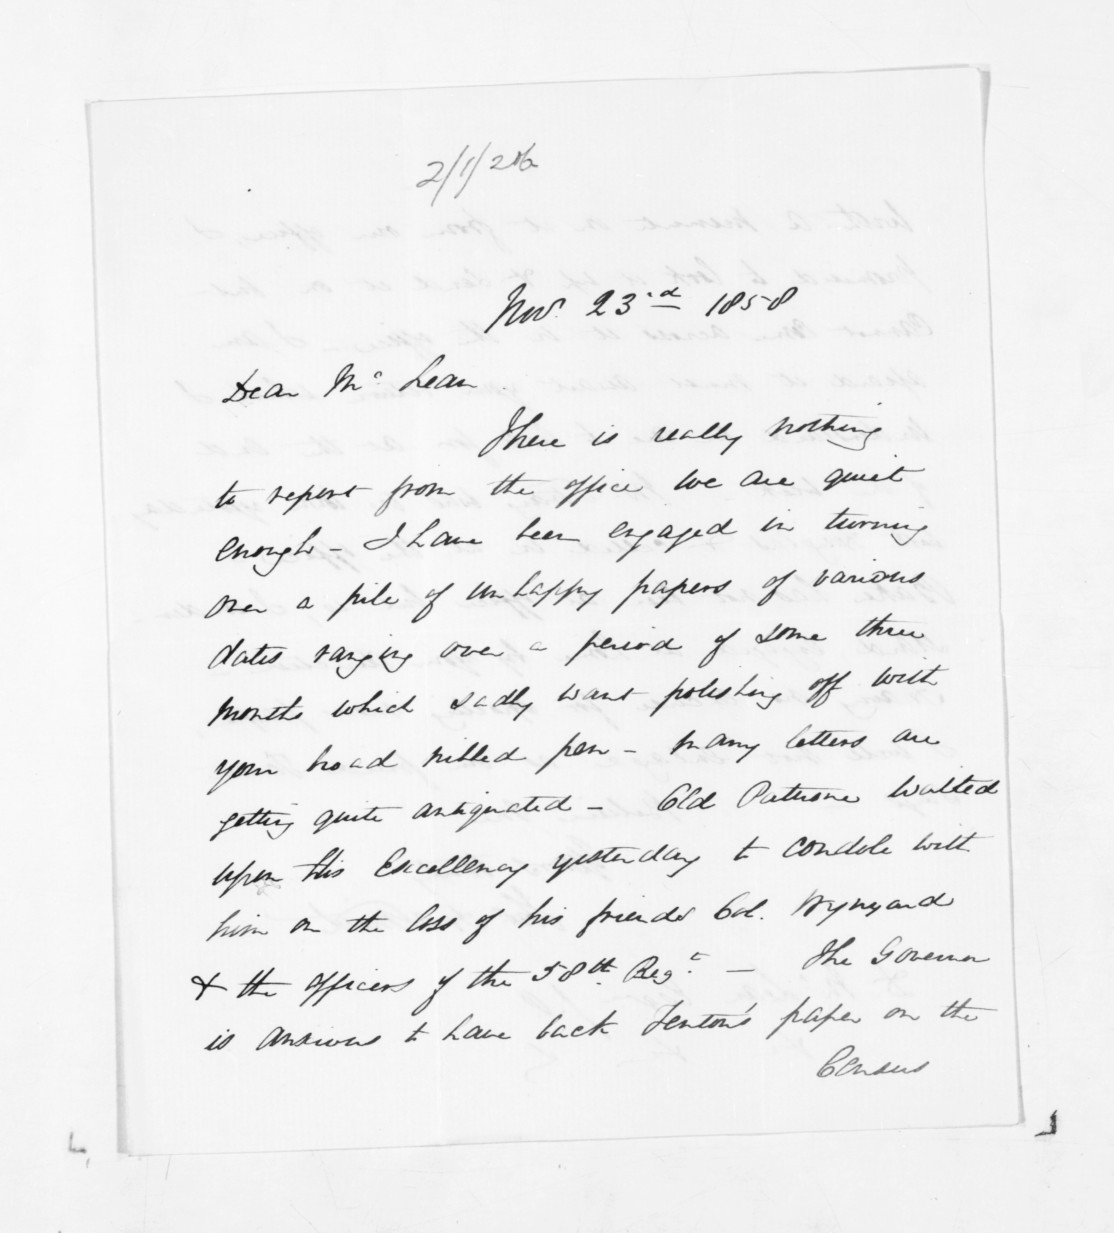 Novr. 23.d 1858
Dear Mc Lean.
There is really nothing
to report from the office we are quiet
enough - I have been engaged in turning
over a pile of unhappy papers of various
dates ranging over a period of some three
months which sadly want polishing off with
your broad nibbed pen - many letters are
getting quite antiquated - Old Patuone waited
upon His Excellency yesterday to condole with
him on the loss of his friends Col. Wynyard
& the officers of the 58th. Regt. - The Governor
is anxious to have back Fenton's paper on the
Census